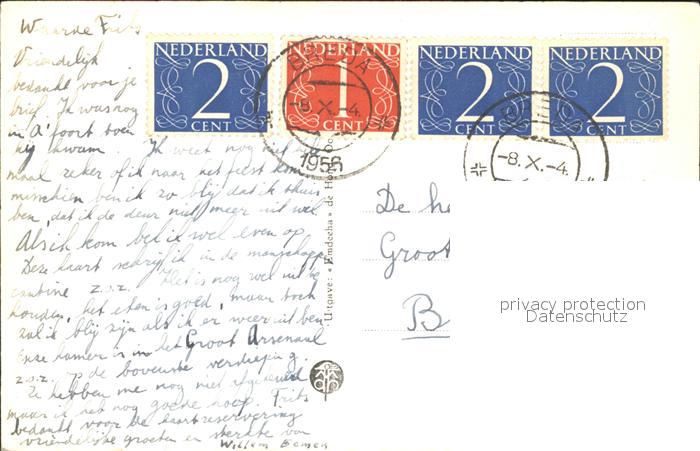 Waarde Frits
Vriendelijk
bedankt voor je
brief. Ik was nog
in A'foort toen
hij kwam. Ik weet nog niet hele-
maal zeker of ik naar het feest kom
misschien ben ik zo blij dat ik thuis
ben, dat ik de deur niet meer uit wil.
Als ik kom bel ik wel even op
Deze kaart schrijf ik in de manschapp.
cantine z.o.z. Het is nog wel uit te
houden, het eten is goed, maar toch
zal ik blij zijn als ik er weer uit ben
Onze kamer is in het Groot Arsenaal
z.o.z. op de bovenste verdieping.
Ze hebben me nog niet afgekeurd
maar ik heb nog goede hoop. Frits
bedankt voor de kaartreservering
vriendelijke groeten en sterkte van
Willem
NEDERLAND
2
CENT
NEDERLAND
1
CENT
NEDERLAND
2
CENT
NEDERLAND
2
CENT
BREDA
-8.X.-4.
1956
-8.X.-4.
Uitgave: « Emdeeha » de
De he
Groot
B
privacy protection
Datenschutz